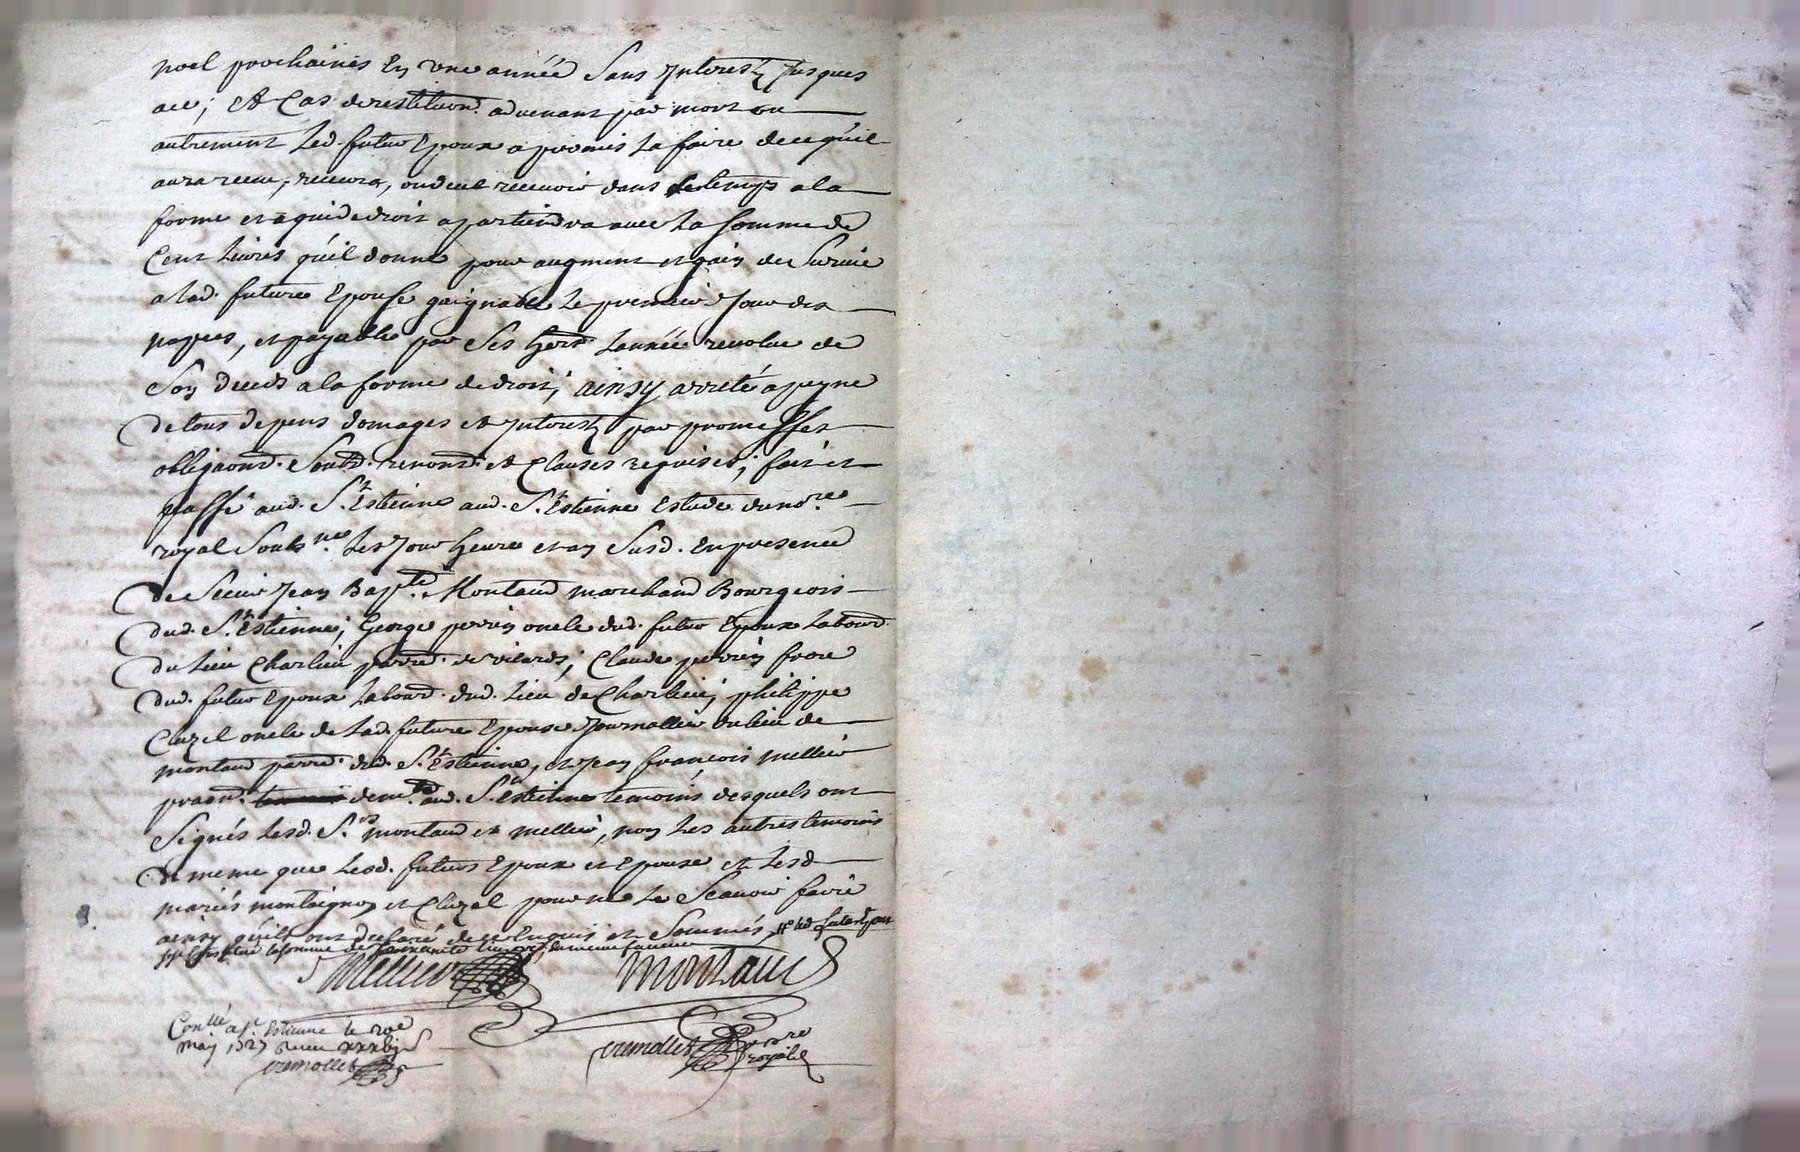 noel prochaines En une année Sans Interest Jusques
ace; Et Cas de restituon. advenant par mort ou
autrement Led. futur Epoux a promis La faire de ce qu'il
aura receu, recevra, ou deut recevoir dans le temps a la
forme et a qui de droit apartiendra avec La somme de
Cent Livres qu'il donne pour augment et gain de Survie
a lad. future Epouse gaignable Le premier Jour des
nopces, et payable par Ses hers Lannée revolue de
Son deceds a la forme de droit; ainsy arreté a peyne
de tous depens domages et Interest par promesses
obligaons. Soubs. renons. et Clauses requises; fait et
passé aud. St. Estienne aud. St. Estienne Estude du nore.
royal Soubsné. Les Jour heure et an Susd. En presence
de Sieur Jean Bapte. Montaud marchand Bourgeois
dud. St. Estienne; George perrin oncle dud. futur Epoux Labour.
du Lieu Charlieu parr. de vilards; Claude perrin frere
dud. futur Epoux Labour. dud. Lieu de Charlieu; philippe
Cluzel oncle de Lad. future Epouse Journallier du lieu de
montaud parr. dud. St. Estienne, et Jean francois mellier
pratn. demt. aud. St. Estienne temoins desquels ont
Signés Lesd. Srs. montaud et mellier, non Les autres temoins
de meme que Lesd. futurs Epoux et Epouse et Lesd
mariés montaignon et Cluzel pour ne Le Scavoir faire
ainsy qu'ils ont declaré de ce Enquis et Sommés
la somme de
Mellier montaud
Conllé a St. Estienne le
may 1727 Receu
cremollet
cremollet nore
royal